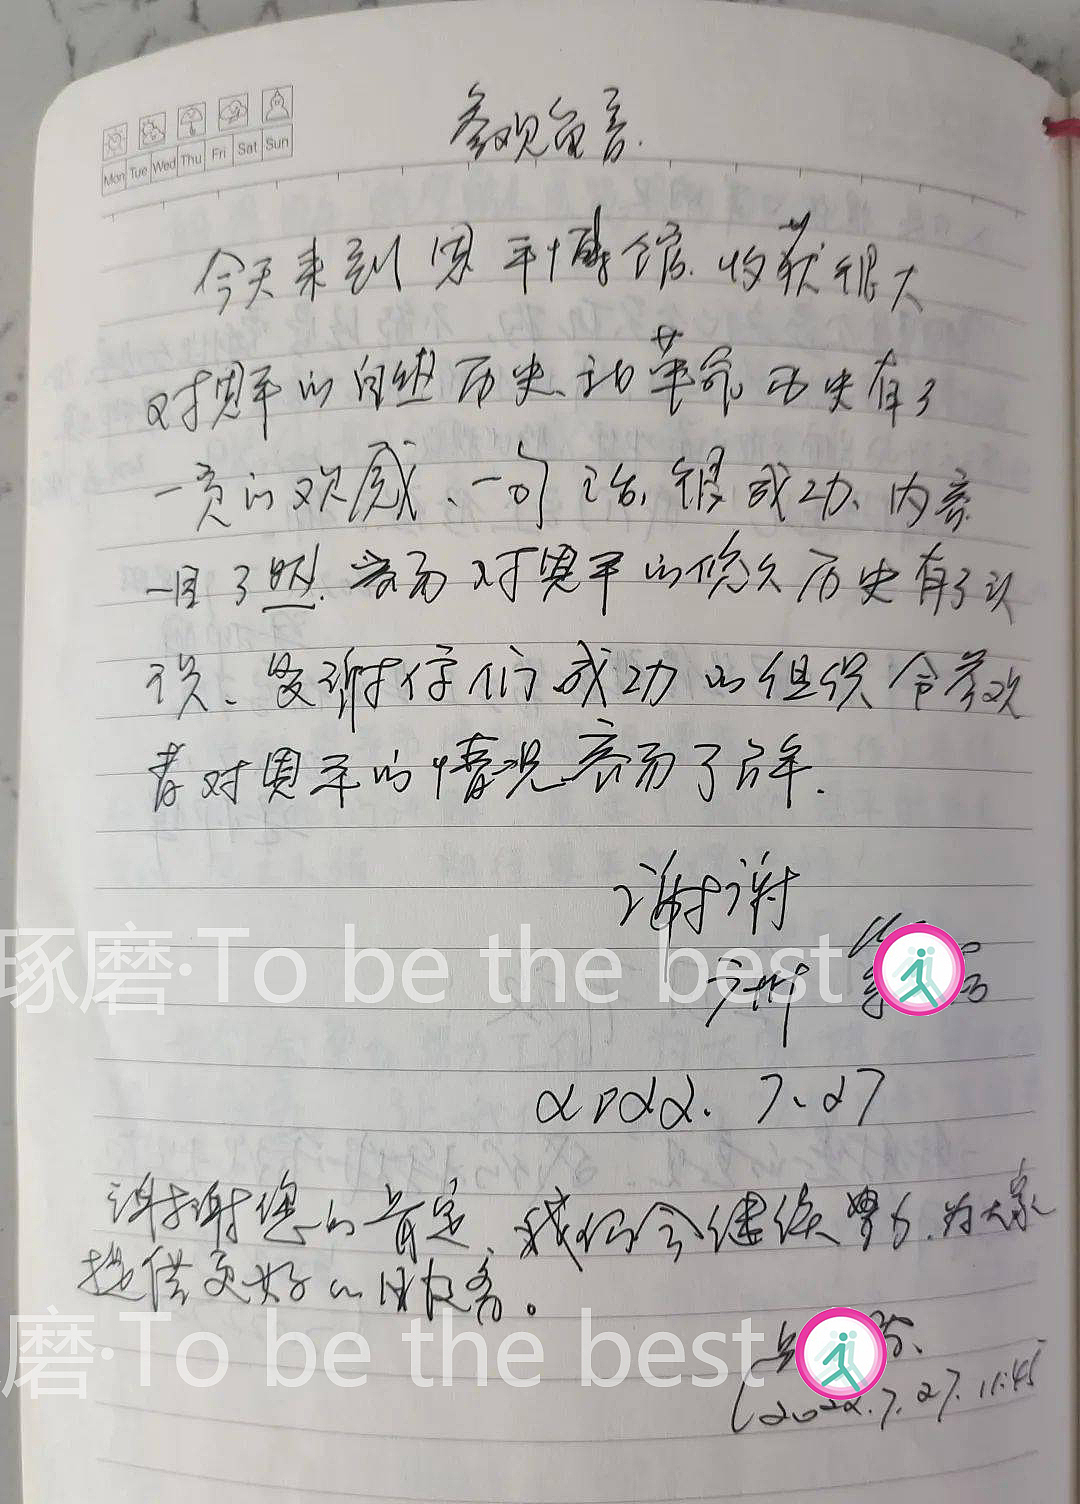 Mon Tue Wed Thu Fri Sat Sun
参观留言.
今天来到恩平博馆.收获很大
对恩平的自然历史、和革命历史有了
一定的观感、一句话,很成功、内容
一目了然. 对恩平的悠久历史有了认
识、感谢你们成功的组织令参观
者对恩平的情况 了解.
谢谢
广州
2022. 7、27
谢谢您的肯定、我们会继续努力.为大家
提供更好的服务。
2022.7.27.11:45
琢磨·To be the best
磨·To be the best